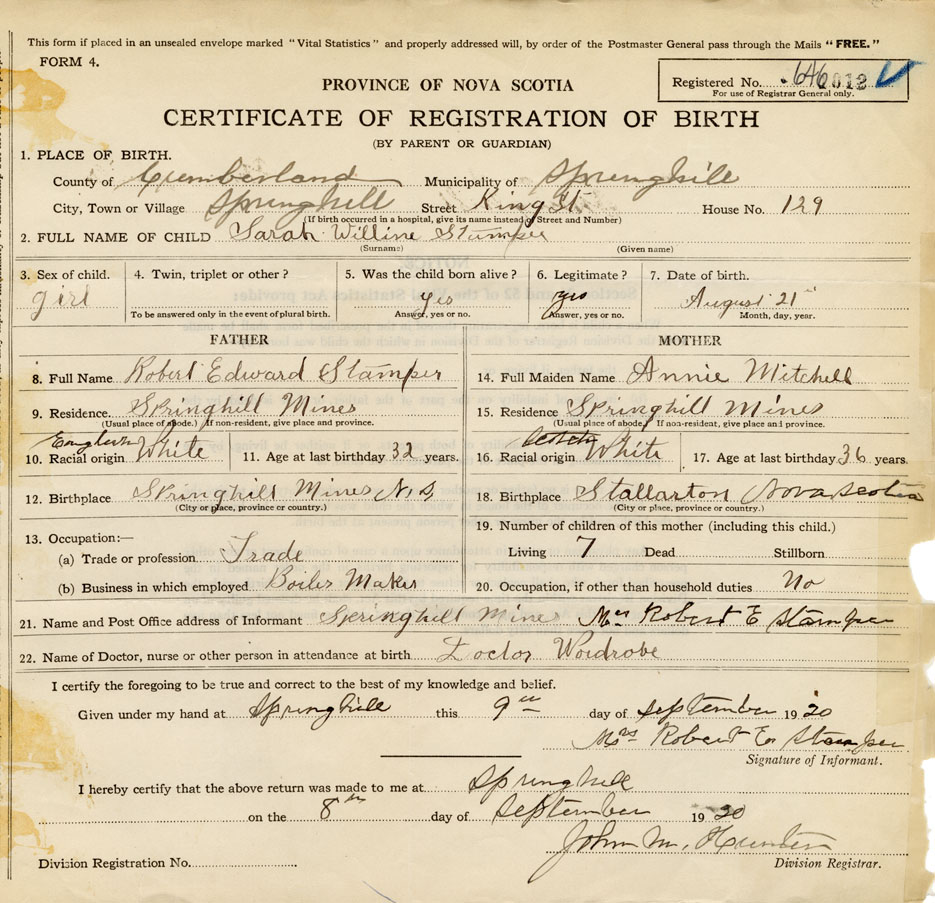 This form if placed in an unsealed envelope marked "Vital Statistics" and properly addressed will, by order of the Postmaster General pass through the Mails "FREE."
FORM 4.
Registered No. 646 012
For use of Registrar General only.
PROVINCE OF NOVA SCOTIA
CERTIFICATE OF REGISTRATION OF BIRTH
(BY PARENT OR GUARDIAN)
1. PLACE OF BIRTH.
County of Cumberland Municipality of Springhill
City, Town or Village Springhill Street King St House No. 129
(If birth occurred in a hospital, give its name instead of Street and Number)
2. FULL NAME OF CHILD Sarah Willine Stamper
(Surname) (Given name)
3. Sex of child. 4. Twin, triplet or other? 5. Was the child born alive? 6. Legitimate? 7. Date of birth.
girl yes yes August 21
To be answered only in the event of plural birth. Answer, yes or no. Answer, yes or no. Month, day, year.
FATHER MOTHER
8. Full Name Robert Edward Stamper 14. Full Maiden Name Annie Mitchell
9. Residence. Springhill Mines 15. Residence Springhill Mines
(Usual place of abode.) If non-resident, give place and province. (Usual place of abode.) If non-resident, give place and province.
10. Racial origin White 11. Age at last birthday 32 years. 16. Racial origin Scotch White 17. Age at last birthday 36 years.
12. Birthplace Springhill Mines N.S. 18. Birthplace Stallarton Nova Scotia
(City or place, province or country.) (City or place, province or country.)
19. Number of children of this mother (including this child.)
13. Occupation:—
Living 7 Dead Stillborn
(a) Trade or profession Trade
(b) Business in which employed Boiler Maker 20. Occupation, if other than household duties No
21. Name and Post Office address of Informant Springhill Mines Mrs Robert E Stamper
22. Name of Doctor, nurse or other person in attendance at birth Doctor Wordrobe
I certify the foregoing to be true and correct to the best of my knowledge and belief.
Given under my hand at Springhill this 9th day of September 1920
Mrs Robert E Stamper
Signature of Informant.
I hereby certify that the above return was made to me at Springhill
on the 8th day of September 1920
John M. Hunter
Division Registration No. Division Registrar.